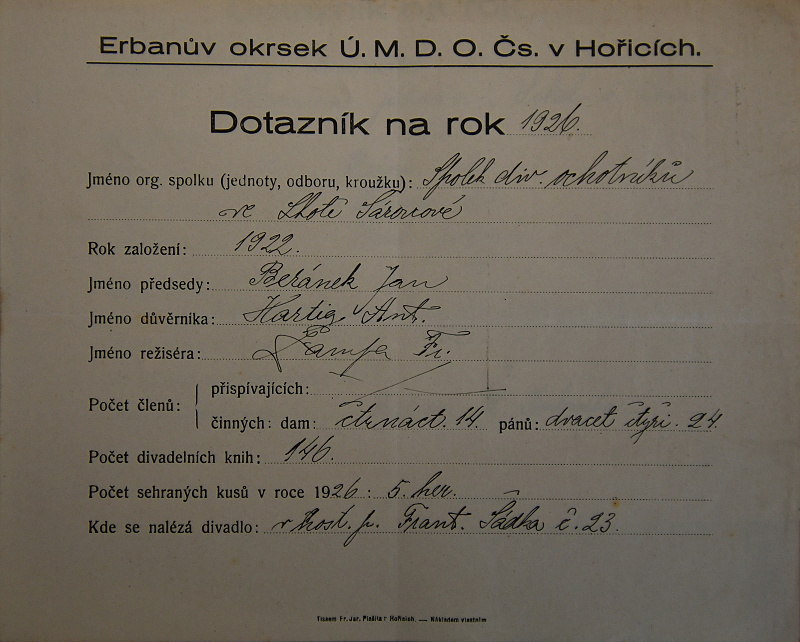 Erbanův okrsek Ú. M. D. O. Čs. v Hořicích.
Dotazník na rok 1926.
Jméno org. spolku (jednoty, odboru, kroužku): Spolek div. ochotníků
ve Lhotě Šárovcové
Rok založení: 1922.
Jméno předsedy: Beránek Jan
Jméno důvěrníka: Hartig Ant.
Jméno režiséra: Fr.
Počet členů: přispívajících:
činných: dam: čtrnáct. 14. pánů: dvacet čtyři. 24.
Počet divadelních knih: 146.
Počet sehraných kusů v roce 1926: 5. her.
Kde se nalézá divadlo: v host. p. Frant. Sádka č. 23.
Tiskem Fr. Jar. Plašila v Hořicích. — Nákladem vlastním